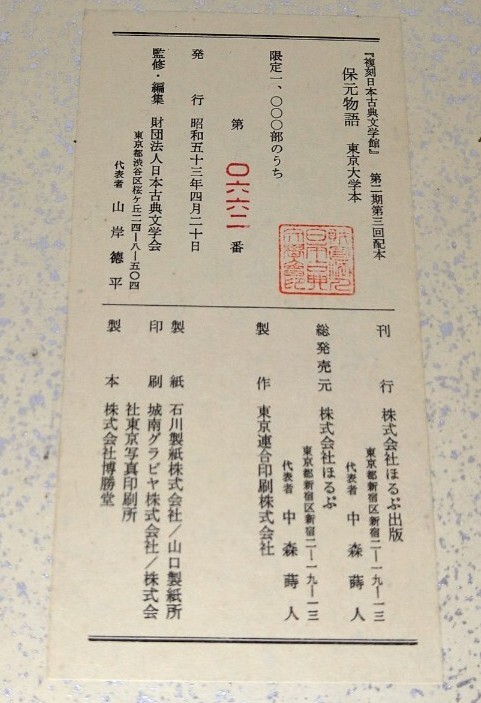 『複刻日本古典文学館』 第二期第三回配本
保元物語 東京大学本
限定一、〇〇〇部のうち
第 〇六六二 番
発行 昭和五十三年四月二十日
監修・編集 財団法人日本古典文学会
東京都渋谷区桜ケ丘二四―八―五〇四
代表者 山岸徳平
刊行 株式会社ほるぷ出版
東京都新宿区新宿二―一九―一三
代表者 中森蒔人
総発売元 株式会社ほるぷ
東京都新宿区新宿二―一九―一三
代表者 中森蒔人
製作 東京連合印刷株式会社
製紙 石川製紙株式会社/山口製紙所
印刷 城南グラビヤ株式会社/株式会
社東京写真印刷所
製本 株式会社博勝堂